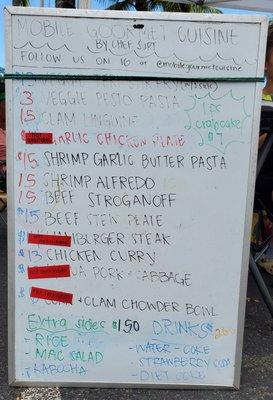 MOBILE GOURMET CUISINE
BY CHEF SURT
FOLLOW US ON IG at @mobilegourmetcuisine
VEGGIE PESTO PASTA
15 CLAM LINGUINE
GARLIC CHICKEN PLATE
$15 SHRIMP GARLIC BUTTER PASTA
15 SHRIMP ALFREDO
15 BEEF STROGANOFF
$15 BEEF STEW PLATE
HAMBURGER STEAK
$13 CHICKEN CURRY
PORK + CABBAGE
CLAM CHOWDER BOWL
1 pc
crabcake
$7
Extra sides $1.50
- RICE
- MAC SALAD
- KABOCHA
DRINKS $2
- WATER - COKE
- STRAWBERRY SODA
- DIET COKE